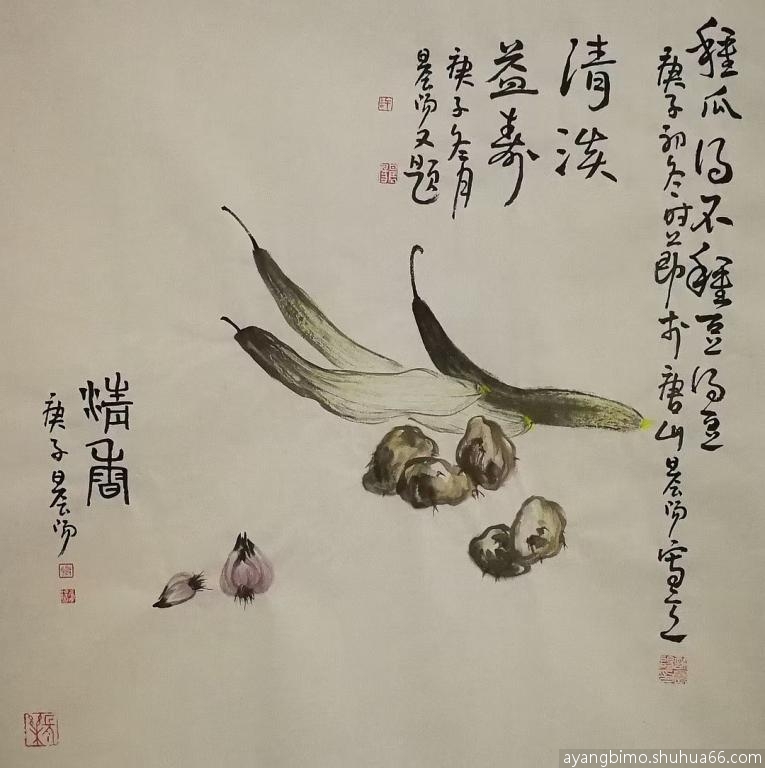 種瓜得瓜種豆得豆
庚子初冬时节即于唐山晨阳写之
清淡
益寿
庚子冬月
晨阳又题
清香
庚子晨阳
ayangbimo.shuhua66.com